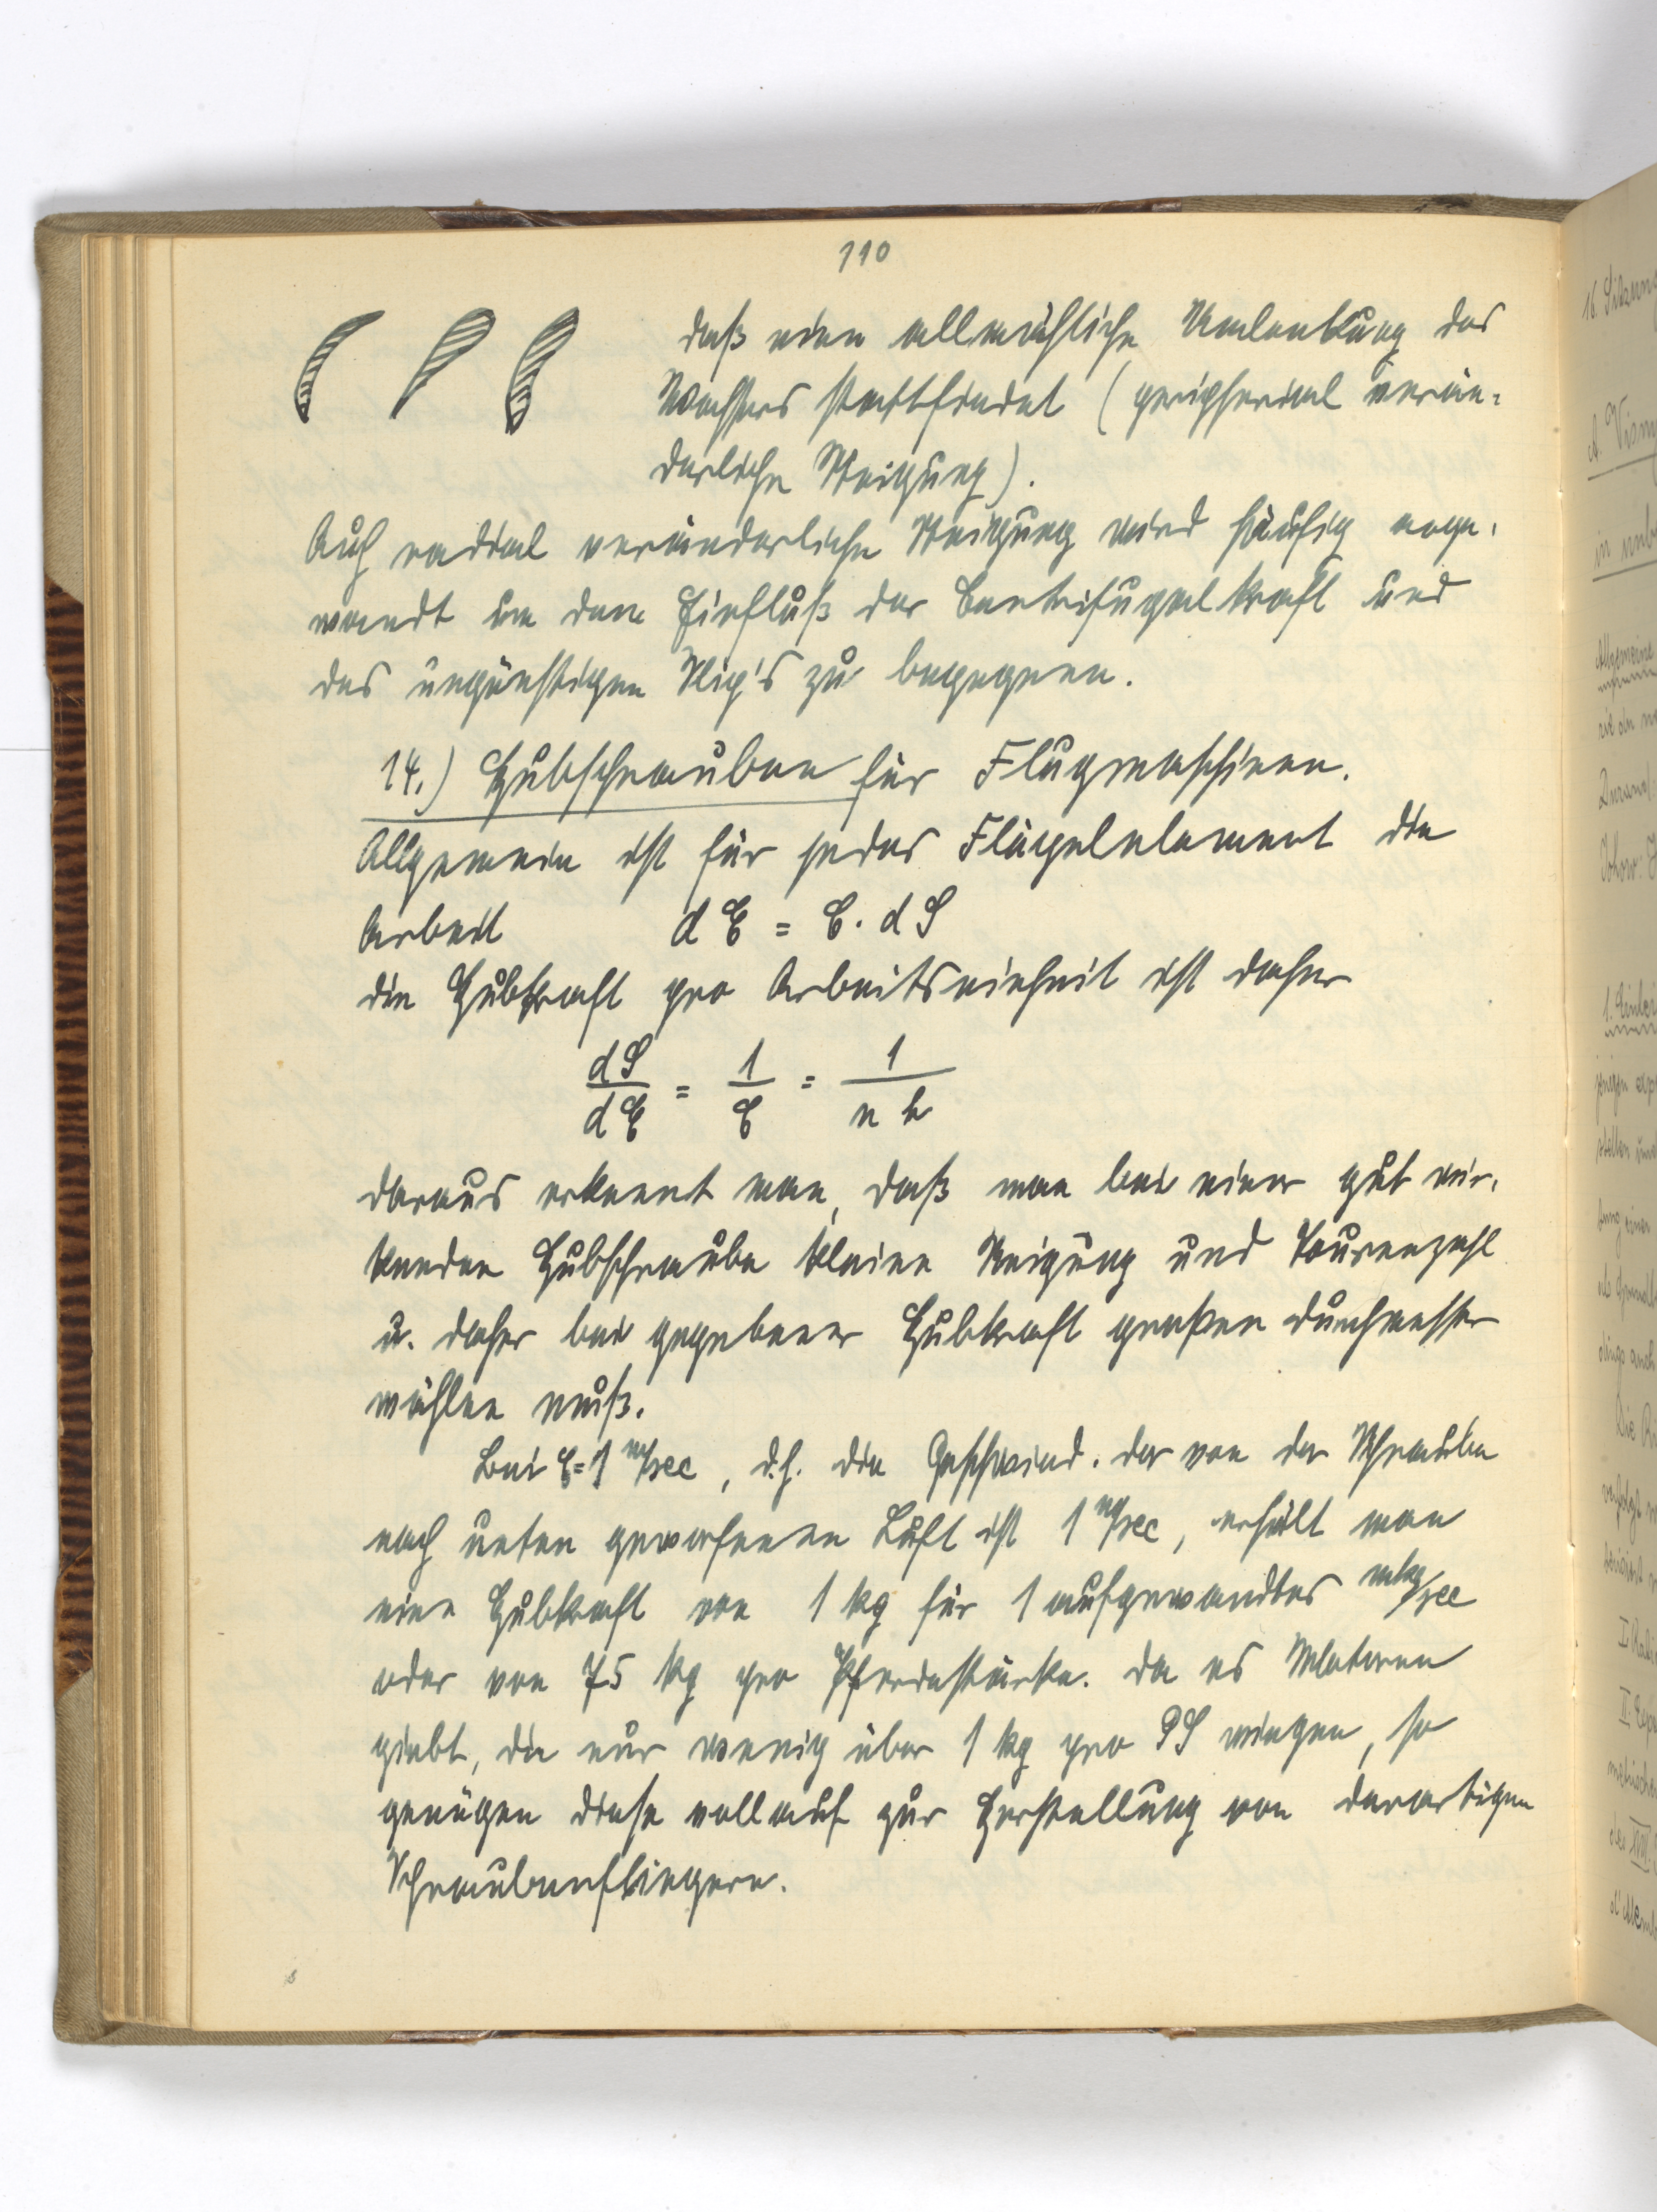 110
daß eine allmähliche Umlenkung des
Wassers stattfindet (peripherial verän-
derliche Steigung).
Auch radial veränderliche Steigung wird häufig ange-
wandt um dem Einfluß der Centrifugalkraft und
des ungünstigen Slip's zu begegnen.
14.) Hubschrauben für Flugmaschinen.
Allgemein ist für jedes Flügelelement die
Arbeit dE = c. dS
die Hubkraft pro Arbeitseinheit ist daher
dS/dE = 1/c = 1/n h
daraus erkennt man, daß man bei einer gut wir-
kenden Hubschraube kleine Steigung und Tourenzahl
u. daher bei gegebener Hubkraft großen Durchmesser
wählen muß.
Bei c=1 m/sec, d.h. die Geschwind. der von der Schraube
nach unten geworfenen Luft ist 1 m/sec, erhält man
eine Hubkraft von 1 kg für 1 aufgewandtes mkg/sec
oder von 75 kg pro Pferdestärke. Da es Motoren
giebt, die nur wenig über 1 kg pro PS wiegen, so
genügen diese vollauf zur Herstellung von derartigen
Schraubenfliegern.
16. Sitzung
in
Allgemeine